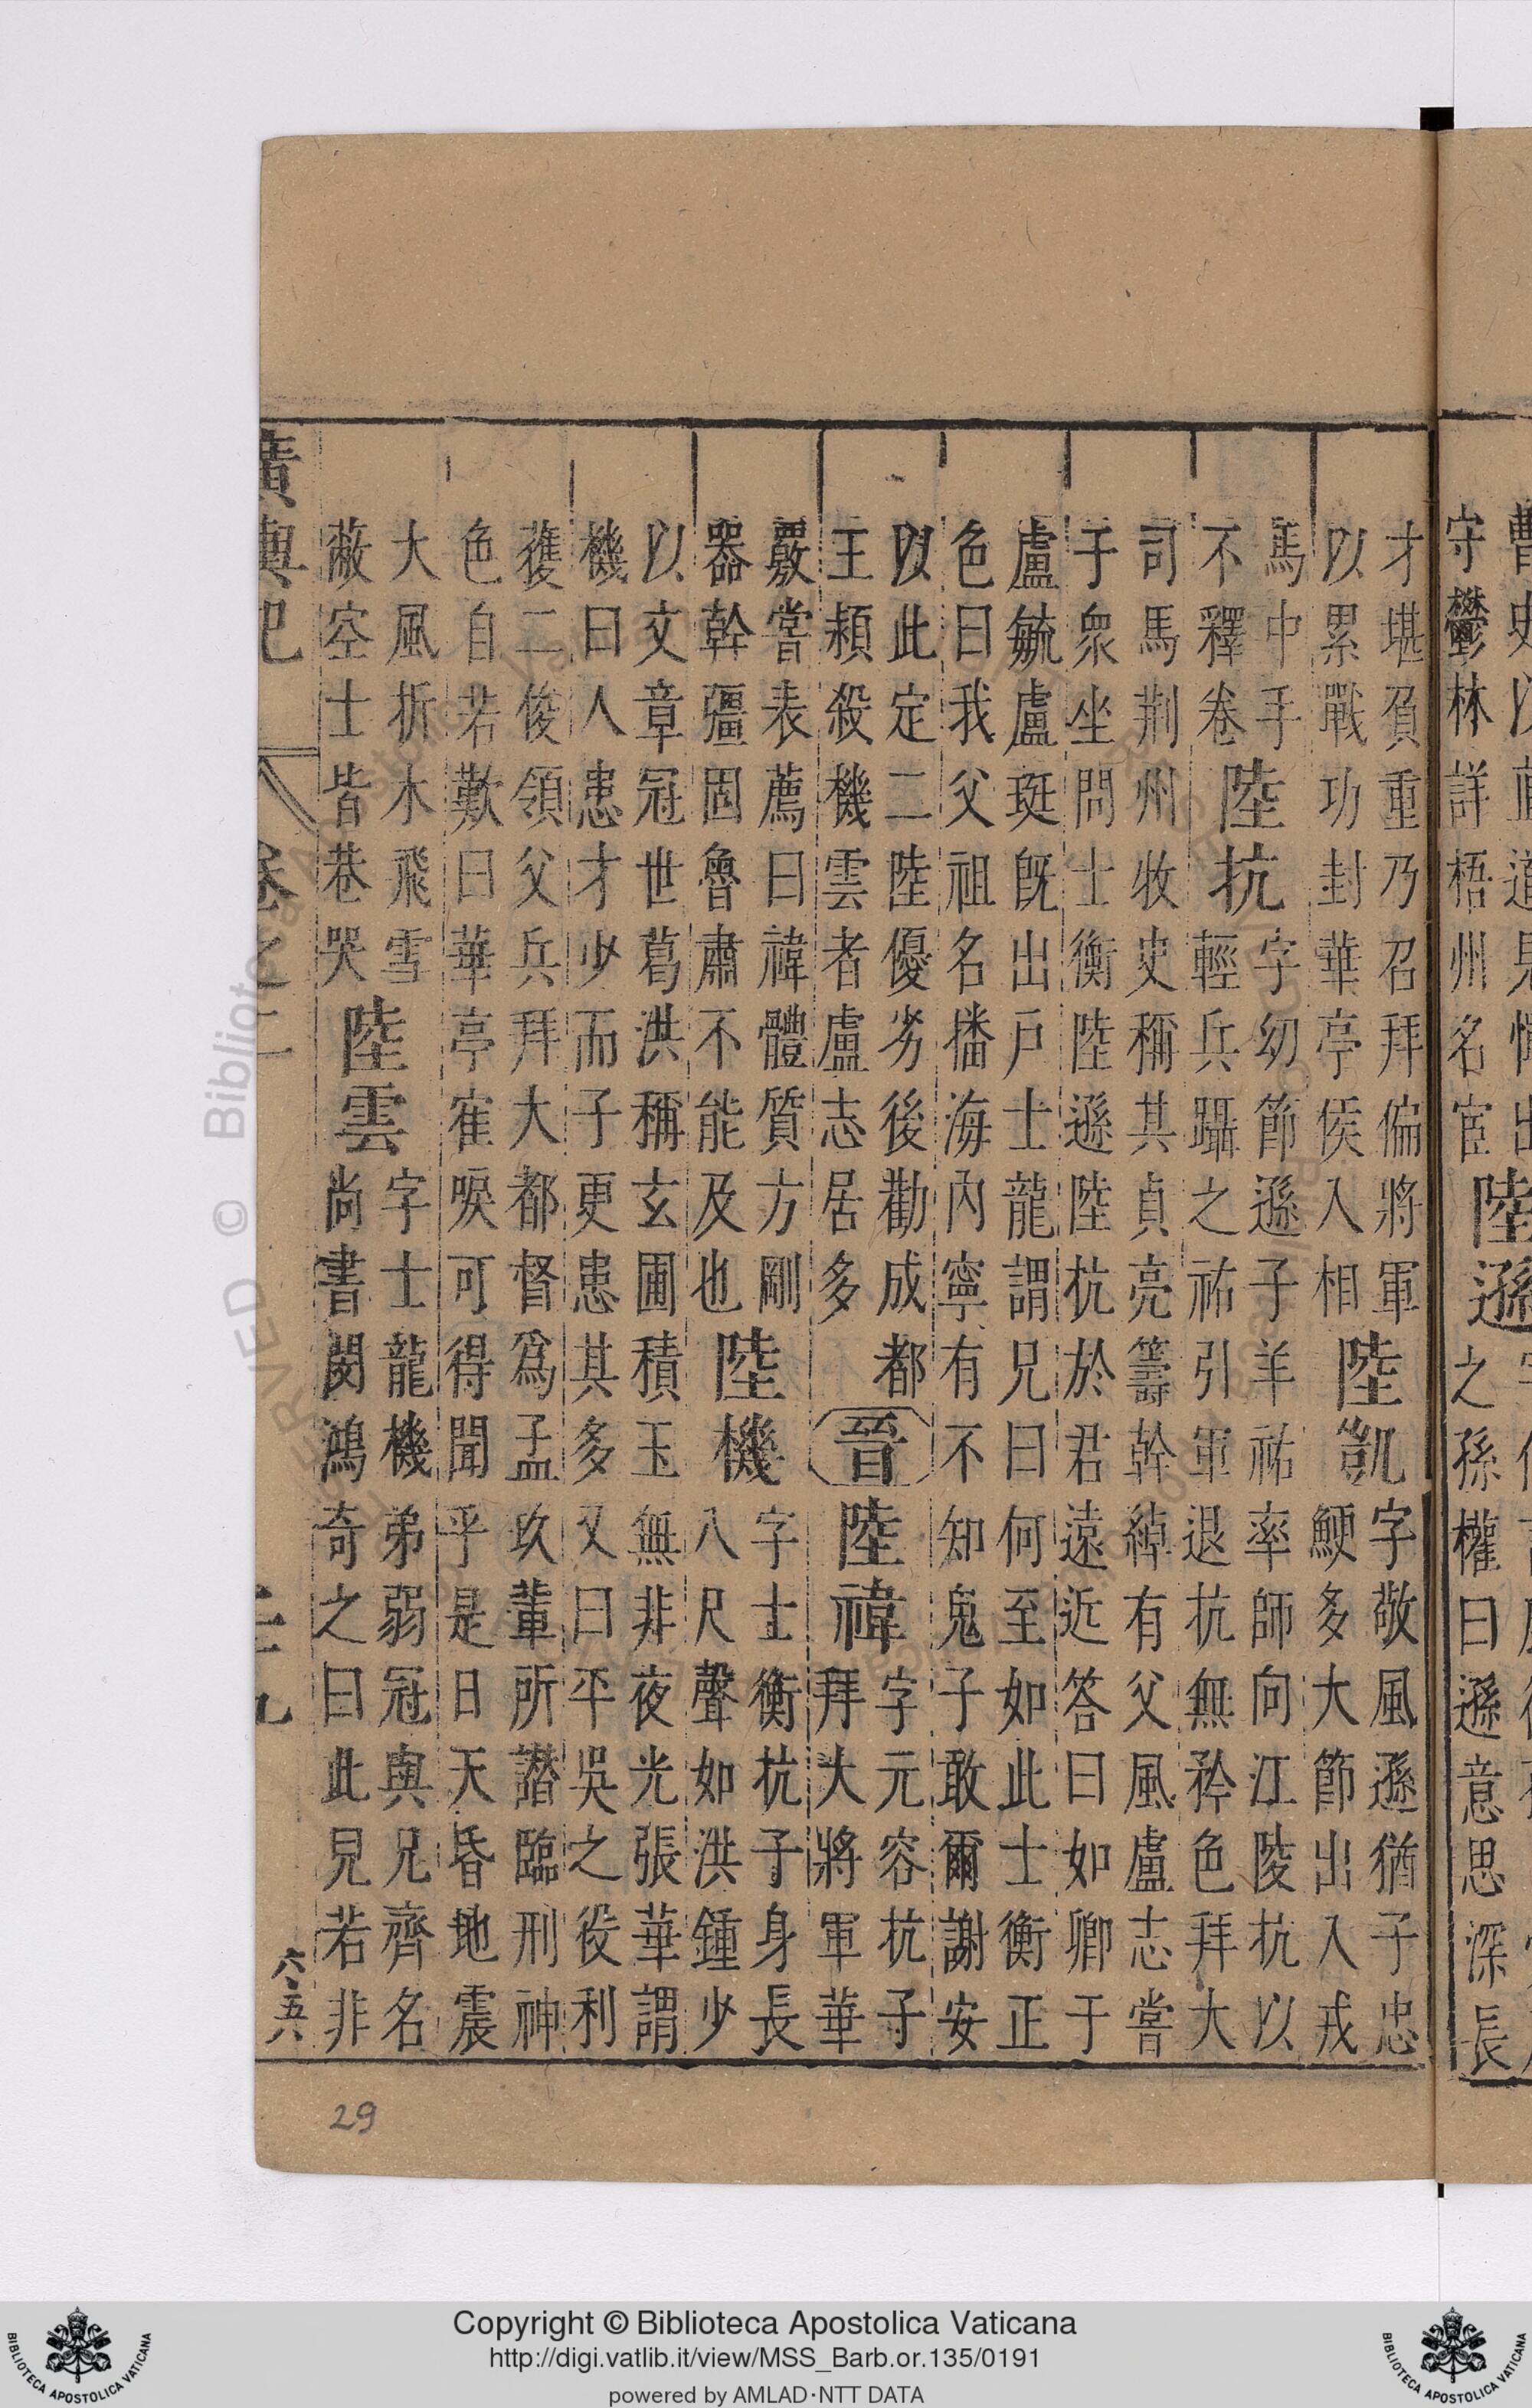 守鬱林詳梧州名宦
陸遜
之孫權曰遜意思深長
才堪負重乃召拜偏將軍
以累戰功封華亭侯入相
陸凱
字敬風遜猶子忠
鯁多大節出入戎
馬中手
不釋卷
陸抗
字幼節遜子羊祜率師向江陵抗以
輕兵躡之祐引軍退抗無矜色拜大
司馬荆州牧史稱其貞亮籌幹綽有父風盧志嘗
于衆坐問士衡陸遜陸抗於君遠近答曰如卿于
盧毓盧珽旣出戶士龍謂兄曰何至如此士衡正
色曰我父祖名播海內寧有不知鬼子敢爾謝安
以此定二陸優劣後勸成都
王頴殺機雲者盧志居多
晉
陸禕
字元容抗子
拜大將軍華
覈嘗表薦曰禕體質方剛
器幹疆固魯肅不能及也
陸機
字士衡抗子身長
八尺聲如洪鍾少
以文章冠世葛洪稱玄圃積玉無非夜光張華謂
機曰人患才少而子更患其多又曰平吳之役利
獲二俊領父兵拜大都督爲孟玖輩所譖臨刑神
色自若歎曰華亭寉唳可得聞乎是日天昏地震
大風折木飛雪
蔽空士皆巷哭
陸雲
字士龍機弟弱冠與兄齊名
尚書閔鴻奇之曰此見若非
廣輿記 卷之二 二九
29
Copyright © Biblioteca Apostolica Vaticana
http://digi.vatlib.it/view/MSS_Barb.or.135/0191
powered by AMLAD·NTT DATA
BIBLIOTECA APOSTOLICA VATICANA
BIBLIOTECA APOSTOLICA VATICANA